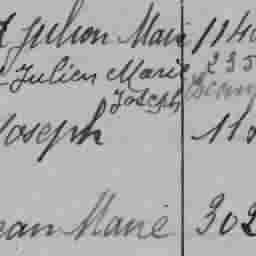 Julien Marie 114
Julien Marie 235
Joseph
Joseph 11
ean Marie 302